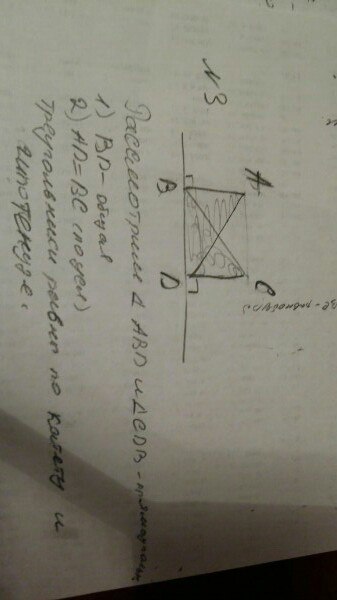 N3.
A C
B D
Рассмотрим Δ ABD и ΔCDB - прямоугольн
1) BD - общая
2) AD = BC (по усл)
треугольники равны по катету и
гипотенузе.